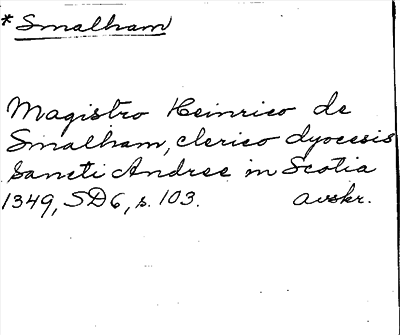 * Smalham
Magistro Heinrico de
Smalham, clerico dyocesis
Sancti Andree in Scotia
1349, SD6, s. 103. avskr.